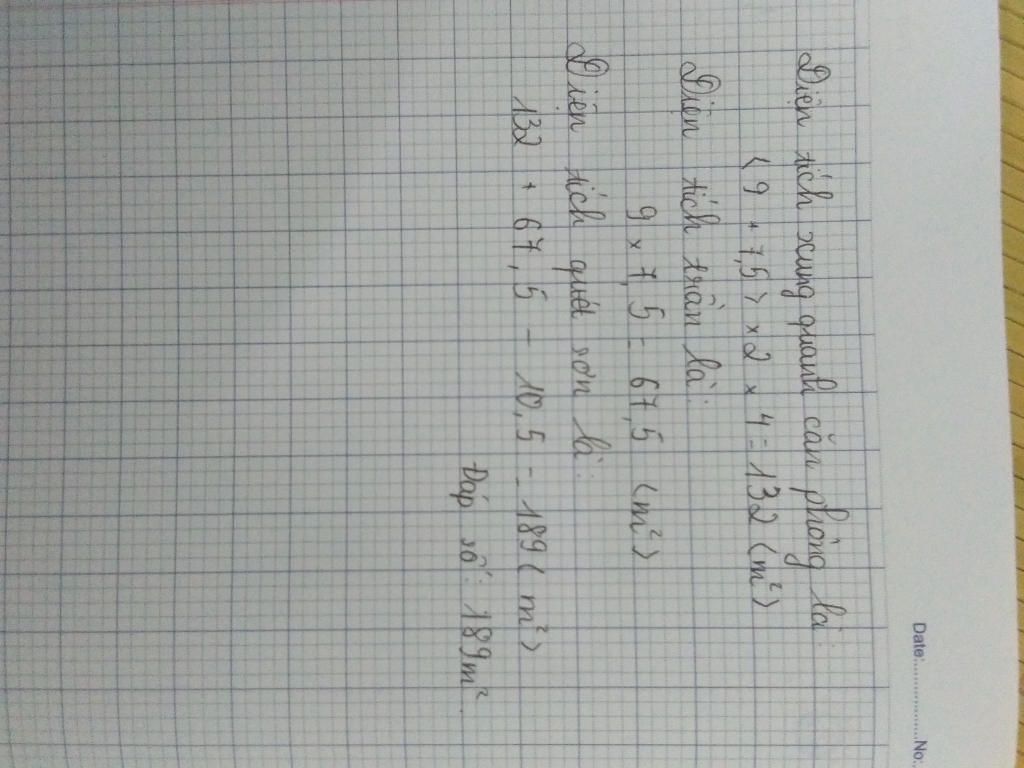 Date:..................No:..
Diện tích xung quanh căn phòng là:
(9 + 7,5) x 2 x 4 = 132 (m²)
Diện tích trần là:
9 x 7,5 = 67,5 (m²)
Diện tích quét sơn là:
132 + 67,5 - 10,5 = 189 (m²)
Đáp số: 189m².